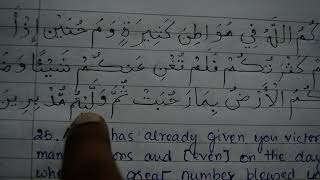 كُمُ اللَّهُ فِي مَوَاطِنَ كَثِيرَةٍ وَ مُ حُنَيْنٍ إِذْ
كَثْرَتُكُمْ فَلَمْ تُغْنِ عَنكُمْ شَيْئًا وَضَ
كُمُ الْأَرْضُ بِمَا رَحُبَتْ ثُمَّ وَلَّيْتُم مُّدْبِرِينَ
25. has already given you victor
man ons and [even] on the day
whe great number pleased